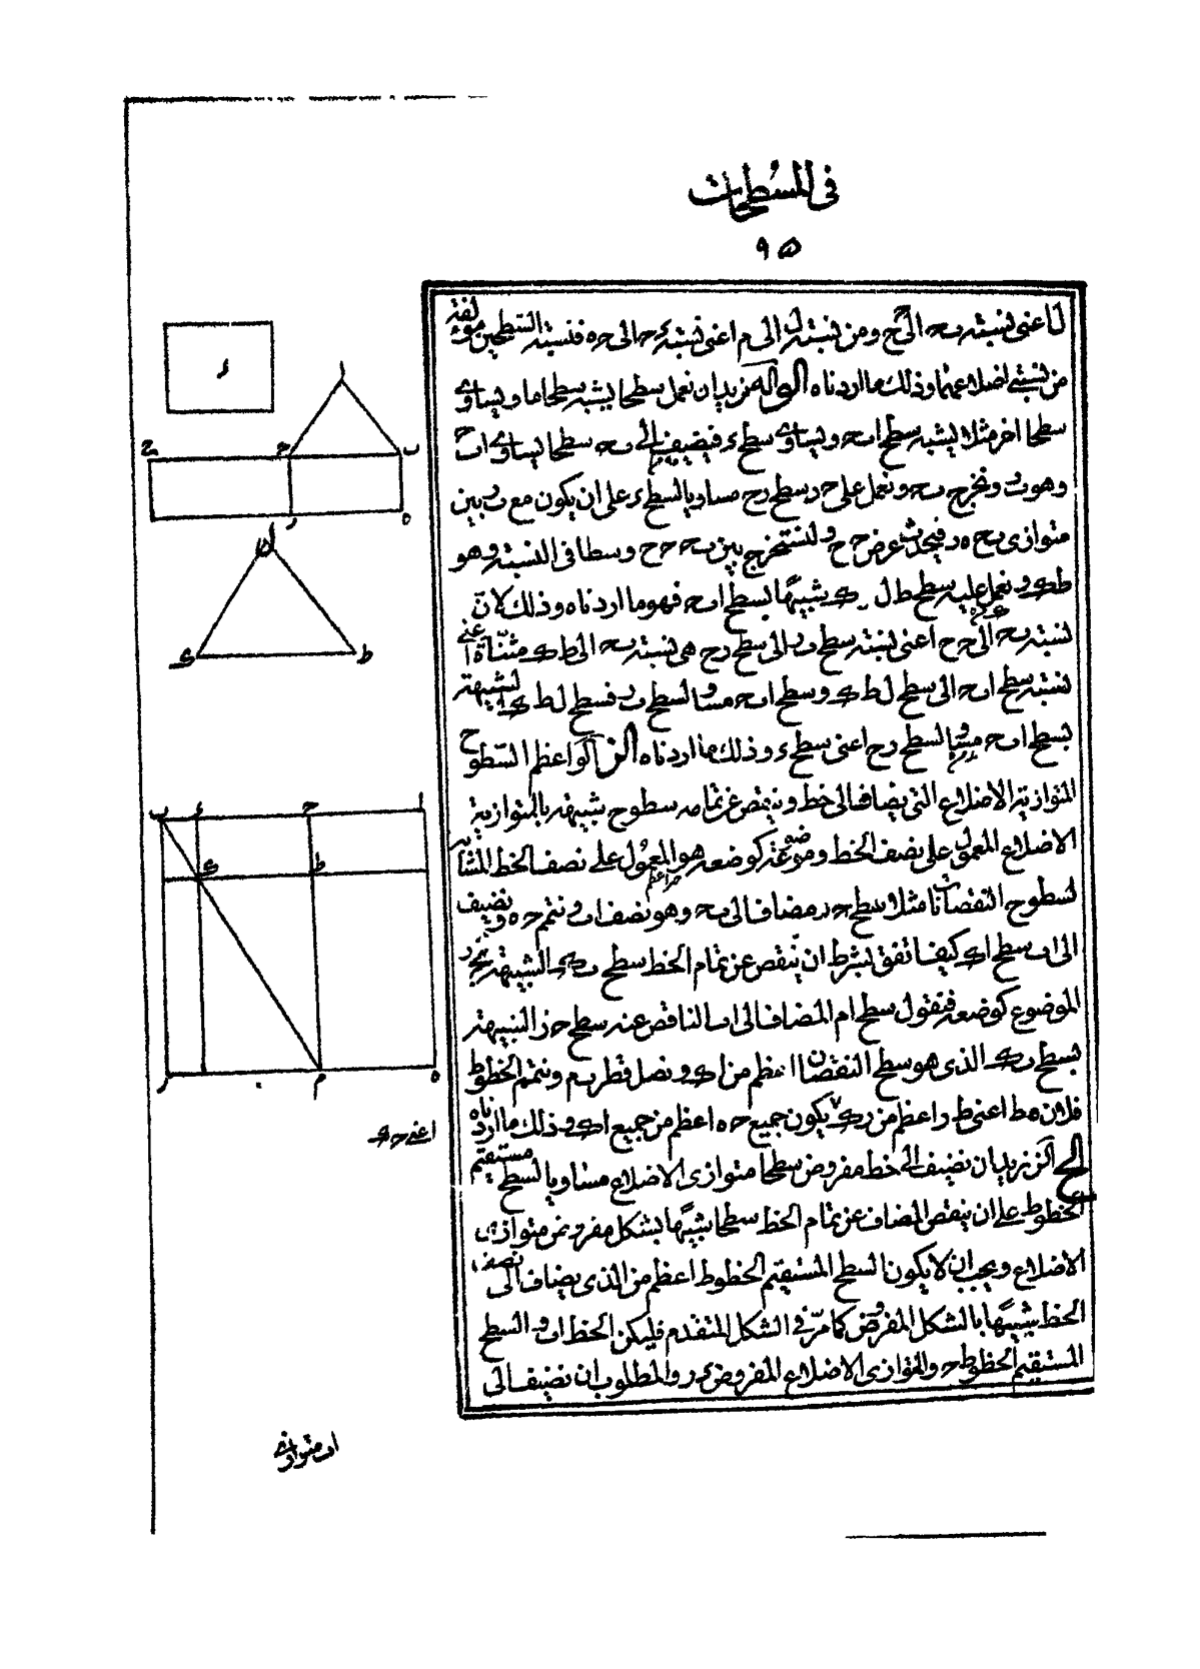 في المسطحات
٩٥
ل اعنى نسبة ب ح الى ح ج ومن نسبة ل الى م اعنى نسبة ء ح الى ح ه فنسبة السطحين مؤلفة
من نسبتى اضلاعهما وذلك ما اردناه نريد ان نعمل سطحا يشبه سطحا ما ويساوى
سطحا اخر مثلا يشبه سطح ا ب ح ويساوى سطح ء فيضيف الى ب ح سطحا يساوى ا ب ح
وهو ب ر ونخرج ب ح ونعمل على ح ر سطح ر ح مساويا لسطح ء على ان يكون مع ب ر بين
متوازى ب ح ه ر فيحدث عرض ح ح ولنستخرج بين ب ح ح ح وسطا فى النسبة وهو
ط ك ونعمل عليه سطح ط ل ك شبيها بسطح ا ب ح فهو ما اردناه وذلك لان
نسبة ب ح الى ح ح اعنى نسبة سطح ب ر الى سطح ر ح هى نسبة ب ح الى ط ك مثناة اعنى
نسبة سطح ا ب ح الى سطح ل ط ك وسطح ا ب ح مساو لسطح ب ر فسطح ل ط ك الشبيهة
بسطح ا ب ح مساو لسطح ر ح اعنى سطح ء وذلك ما اردناه اعظم السطوح
المتوازية الاضلاع التى يضاف الى خط وينقص عن تمامه سطوح شبيهة بالمتوازية
الاضلاع المعمول على نصف الخط وموضوعة كوضعه هو المعمول على نصف الخط المشابه
لسطوح النقصانات مثلا سطح ح ر مضاف الى ب ح وهو نصف ا ب ونتمم ح ه ونضيف
الى ا ب سطح ا ك كيف اتفق بشرط ان ينقص عن تمام الخط سطح ب ك الشبيهة ب ح ر
الموضوع كوضعه فنقول سطح ا م المضاف الى ا ب الناقص عنه سطح ح ر الشبيهة
بسطح ب ك الذى هو سطح النقصان اعظم من ا ك ونصل قطر ب م ونتمم الخطوط
فلان ه ط اعنى ط ر اعظم من ر ك يكون جميع ح ه اعظم من جميع ا ك وذلك ما اردناه
نريد ان نضيف الى خط مفروض سطحا متوازى الاضلاع مساويا لسطح مستقيم
الخطوط على ان ينقص المضاف عن تمام الخط سطحا شبيها بشكل مفروض متوازى
الاضلاع ويجب ان لا يكون السطح المستقيم الخطوط اعظم من الذى يضاف الى نصف
الخط شبيها بالشكل المفروض كما مر فى الشكل المتقدم فليكن الخط ا ب والسطح
المستقيم الخطوط ح والمتوازى الاضلاع المفروض ء ر والمطلوب ان نضيف الى
ء
ا
ح
ح
ب
ر
ه
ل
ك
ط
ب
ء
ح
ا
ك
ط
ر
م
ه
اعنى ح ك
ا ب متوازى